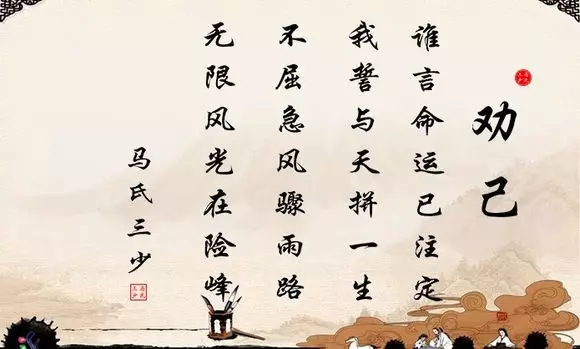 劝己
谁言命运已注定
我誓与天拼一生
不屈急风骤雨路
无限风光在险峰
马氏三少